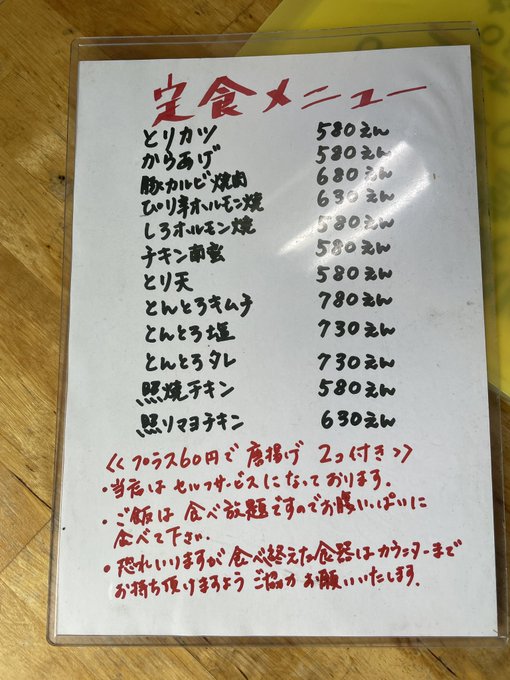 定食メニュー
とりカツ 580えん
からあげ 580えん
豚カルビ焼肉 680えん
ぴり辛ホルモン焼 630えん
しろホルモン焼 580えん
チキン南蛮 580えん
とり天 580えん
とんとろキムチ 780えん
とんとろ塩 730えん
とんとろタレ 730えん
照焼チキン 580えん
照リマヨチキン 630えん
<<プラス60円で 唐揚げ 2コ付き>>
・当店は セルフサービスになっております。
・ご飯は 食べ放題ですのでお腹いっぱいに
食べて下さい。
・恐れいりますが 食べ終えた食器は カウンターまで
お持ち頂けますよう ご協力 お願いいたします。